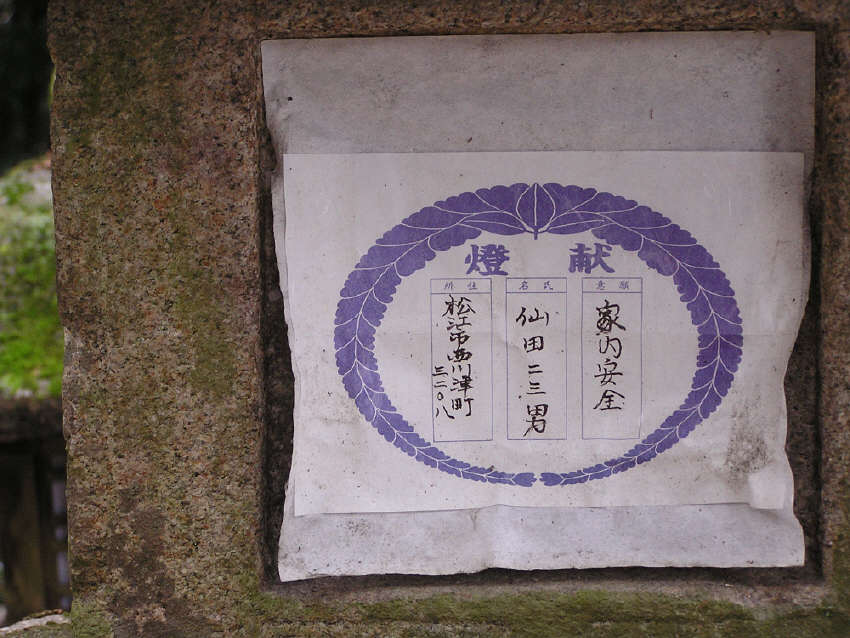 献燈
願意
家内安全
氏名
仙田二三男
住所
松江市西川津町
三二〇八